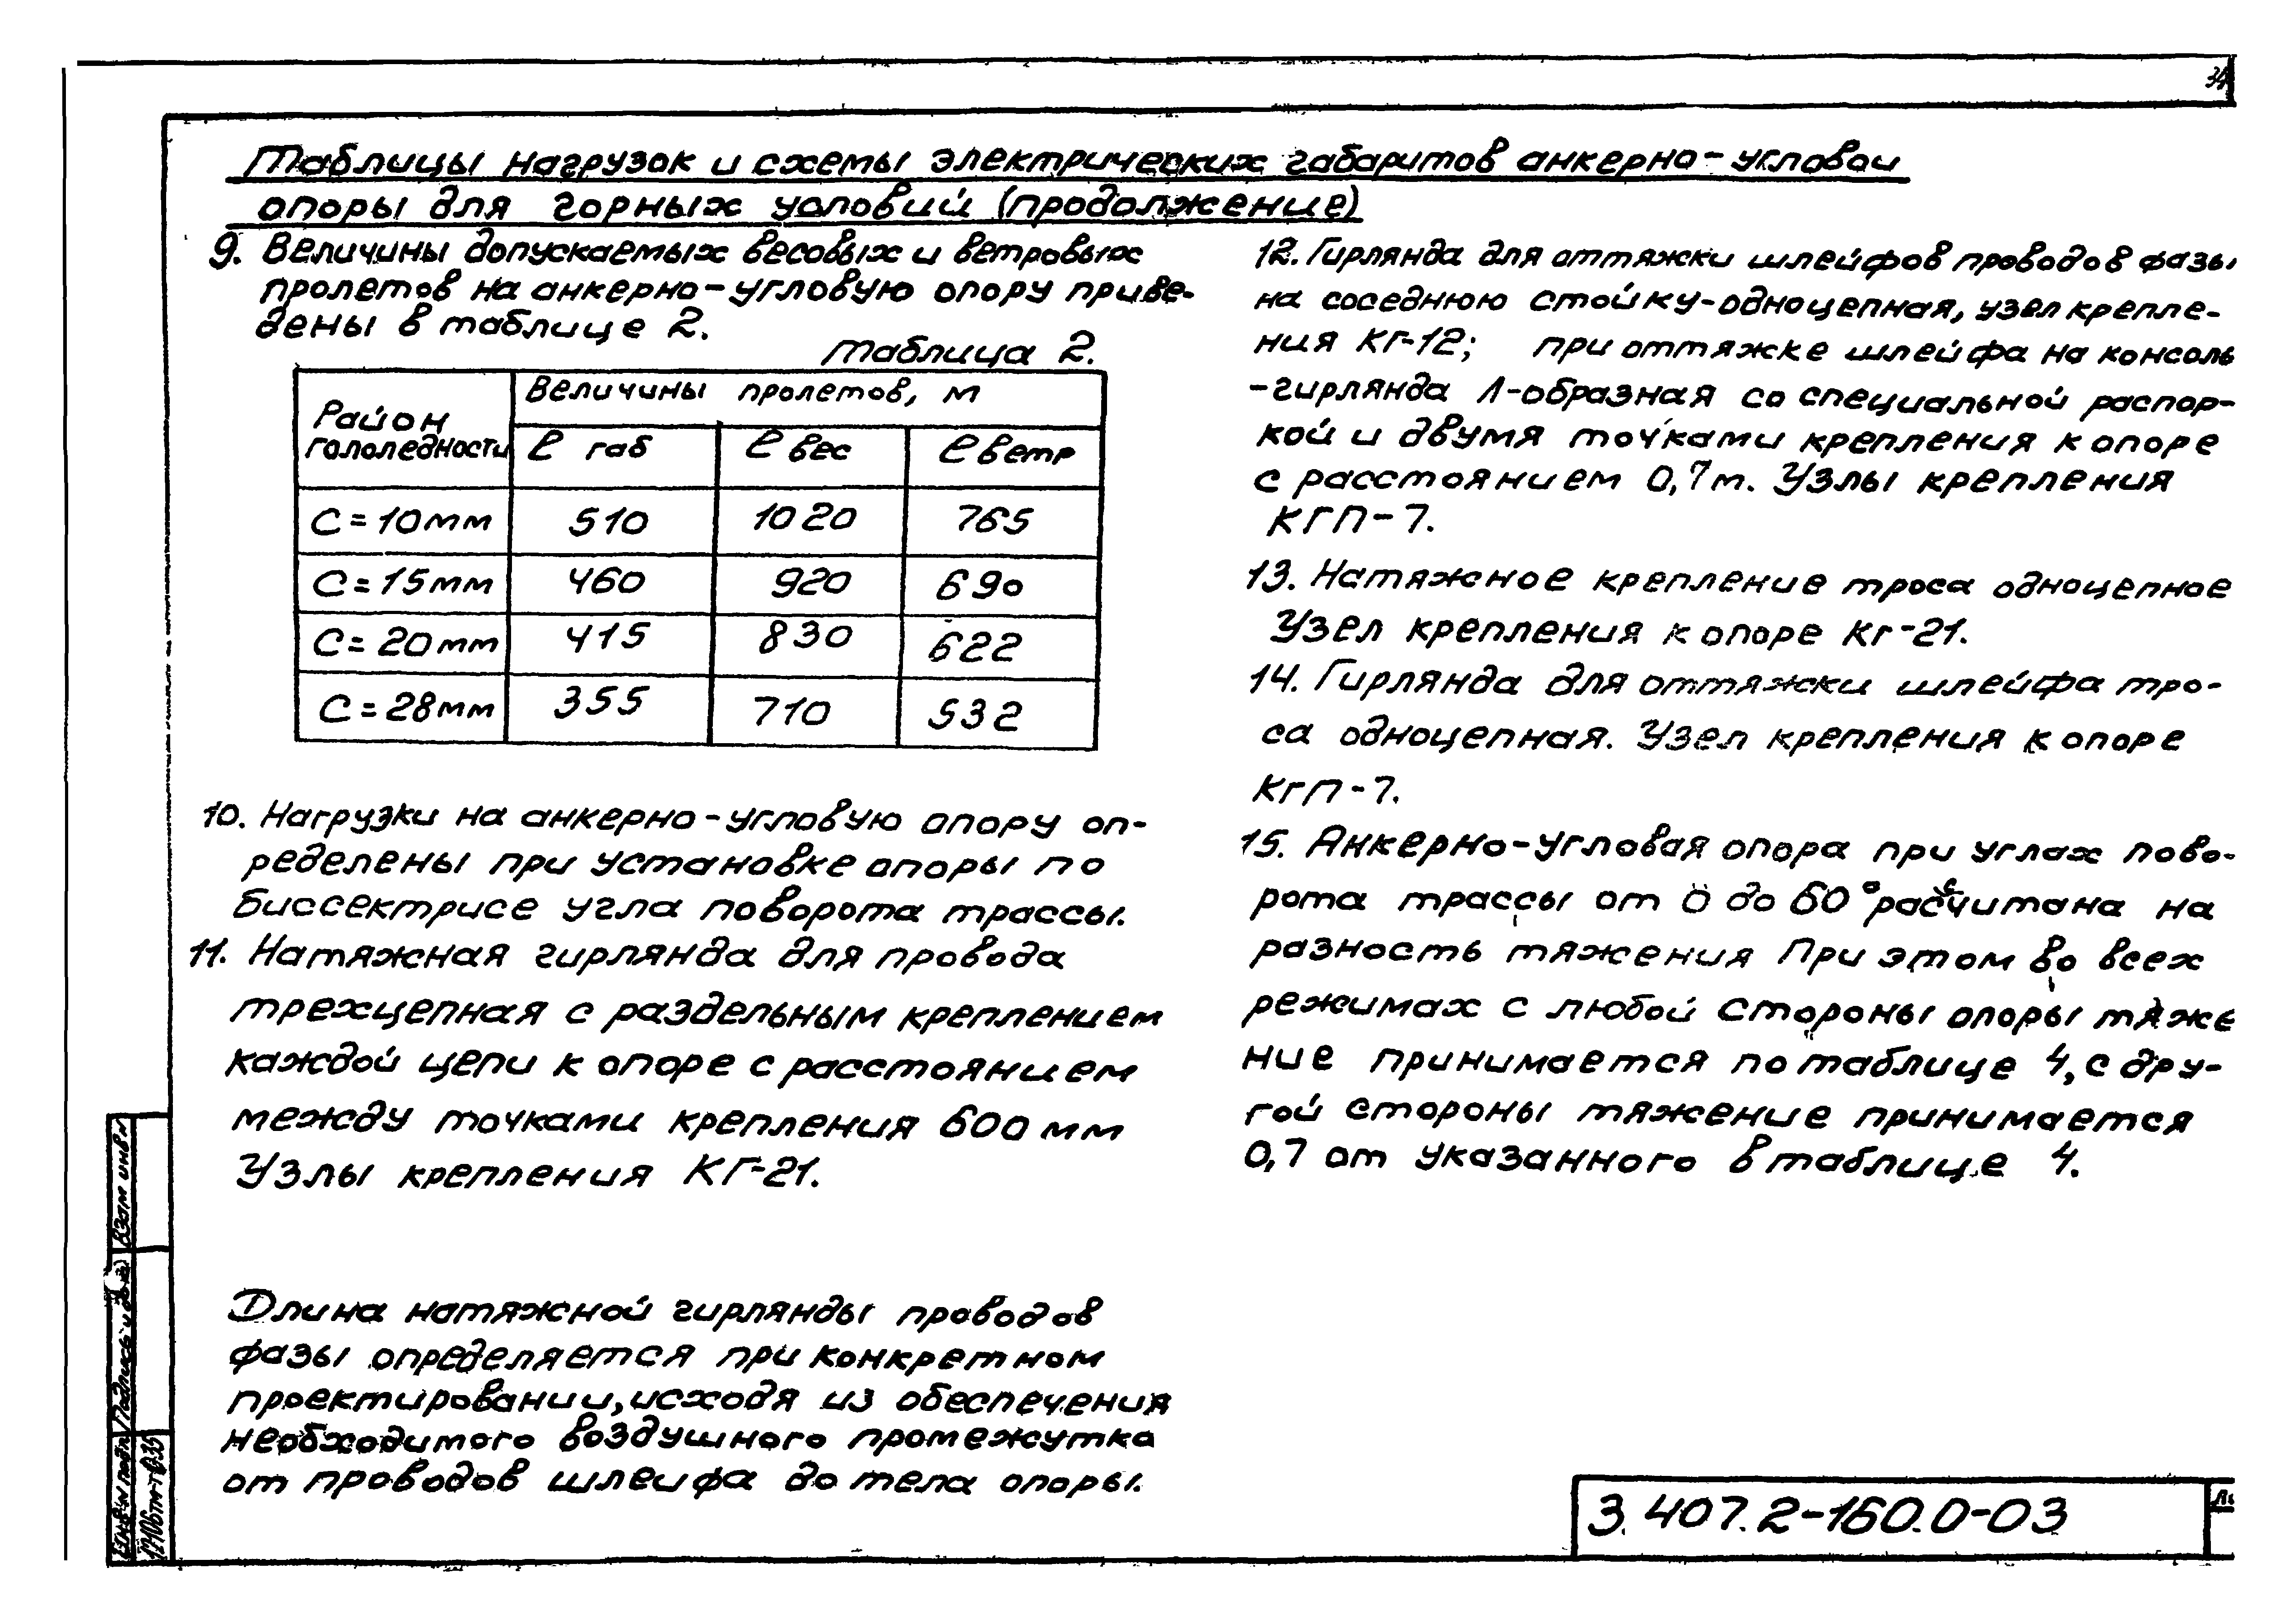 34
Таблицы нагрузок и схемы электрических габаритов анкерно-угловои
опоры для горных условий (продолжение)
9. Величины допускаемых весовых и ветровых
пролетов на анкерно-угловую опору приве-
дены в таблице 2.
таблица 2.
Район
гололедности
Величины пролетов, м
ℓ габ
ℓ вес
ℓ ветр
С=10мм 510 1020 765
С=15мм 460 920 690
С=20мм 415 830 622
С=28мм 355 710 532
10. Нагрузки на анкерно-угловую опору оп-
ределены при установке опоры по
биссектрисе угла поворота трассы.
11. Натяжная гирлянда для провода
трехцепная с раздельным креплением
каждой цепи к опоре с расстоянием
между точками крепления 600 мм
Узлы крепления КГ-21.
Длина натяжной гирлянды проводов
фазы определяется при конкретном
проектировании, исходя из обеспечения
необходимого воздушного промежутка
от проводов шлеифа до тела опоры.
12. Гирлянда для оттяжки шлейфов проводов фазы
на соседнюю стойку-одноцепная, узел крепле-
ния КГ-12; при оттяжке шлейфа на консоль
-гирлянда Л-образная со специальной распор-
кой и двумя точками крепления к опоре
с расстоянием 0,7м. Узлы крепления
КГП-7.
13. Натяжное крепление троса одноцепное
Узел крепления к опоре Кг-21.
14. Гирлянда для оттяжки шлейфа тро-
са одноцепная. Узел крепления к опоре
КгП-7.
15. Анкерно-угловая опора при углах пово-
рота трассы от 0 до 60° расчитана на
разность тяжения При этом во всех
режимах с любой стороны опоры тяже
ние принимается по таблице 4, с дру-
гой стороны тяжение принимается
0,7 от указанного в таблице 4.
Взам инв№
Подпись и дата
Инв№ подл
12406тм-т0.35
3.407.2-160.0-03